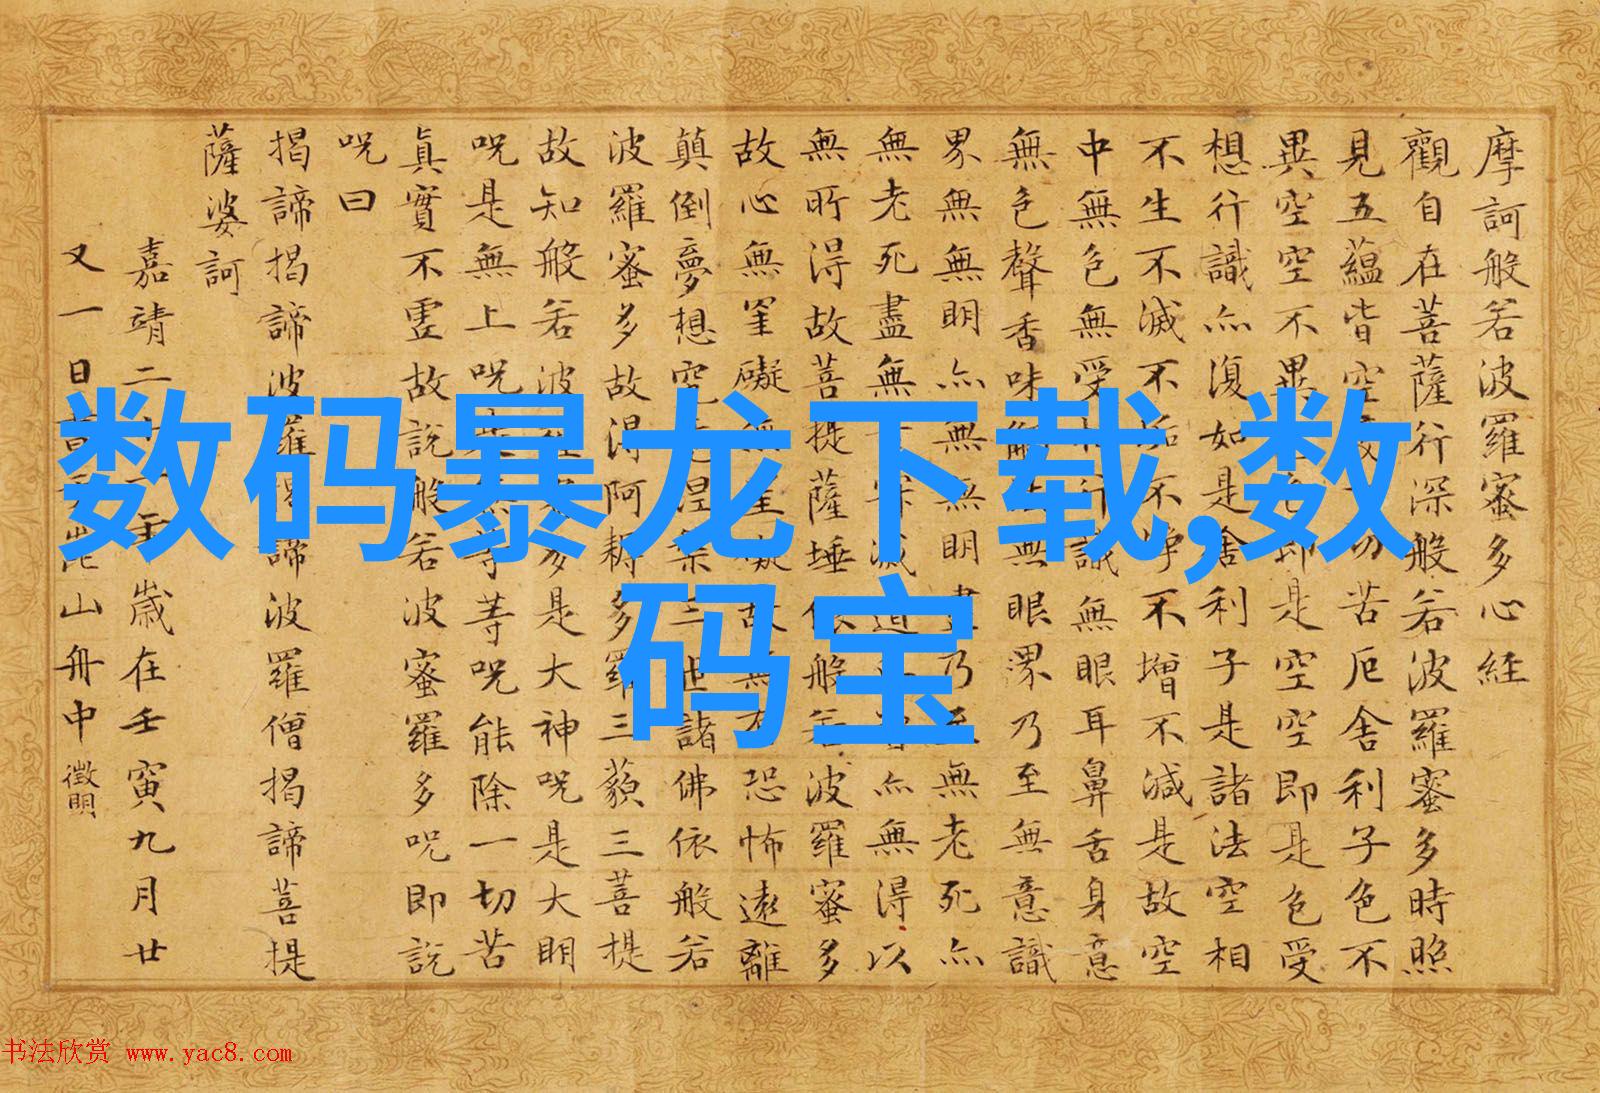 摩訶般若波羅蜜多心経
觀自在菩薩行深般若波羅蜜多時照
見五蘊皆空切苦厄舍利子色不
異空空不異即是空空即是色受
想行識亦復如是舍利子是諸法空相
不生不滅不垢不淨不增不減是故空
中無色無受行識無眼耳鼻舌身意
無色聲香味無眼界乃至無意識
界無無明亦無無明盡乃至無老死亦
無老死盡無滅道亦無得以
無所得故菩提薩埵依般若波羅蜜多
故心無罣礙無罣礙故無有恐怖遠離
顛倒夢想究涅槃三世諸佛依般若
波羅蜜多故得阿耨多羅三藐三菩提
故知般若波多是大神呪是大明
呪是無上呪是無等等呪能除一切苦
真實不虛故說般若波羅蜜多呪即說
呪曰
揭諦揭諦波羅揭諦波羅僧揭諦菩提
薩婆訶
嘉靖二十一年歲在壬寅九月廿
又一日山舟中 徵明
数码暴龙下载,数
码宝
书法欣赏 www.yac8.com